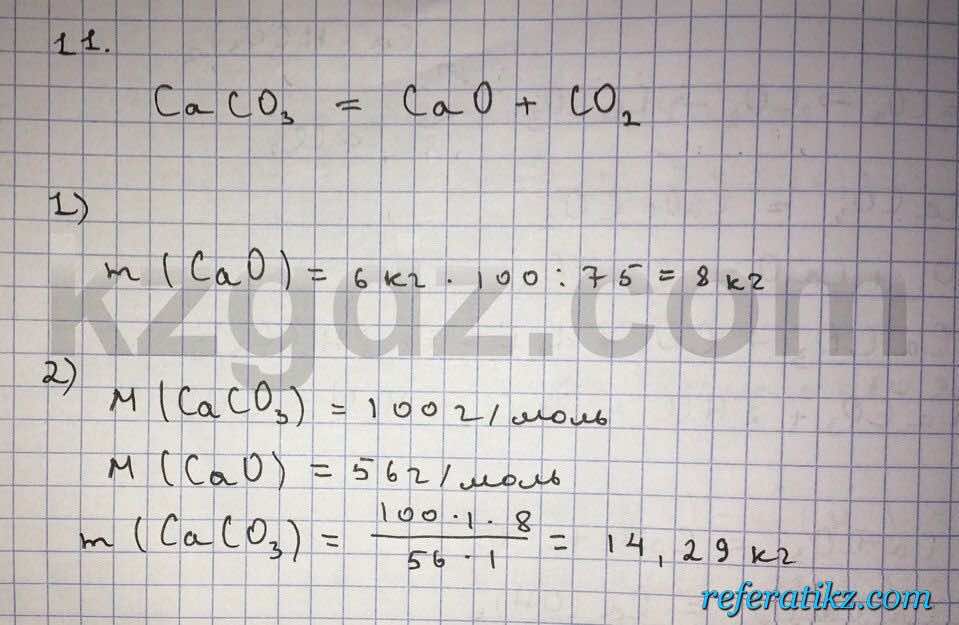 11.
CaCO₃ = CaO + CO₂
1)
m (CaO) = 6 кг · 100 : 75 = 8 кг
kzgdz.com
2)
M (CaCO₃) = 100 г/моль
M (CaO) = 56 г/моль
m (CaCO₃) = 100 · 1 · 8 / 56 · 1 = 14,29 кг
referatikz.com